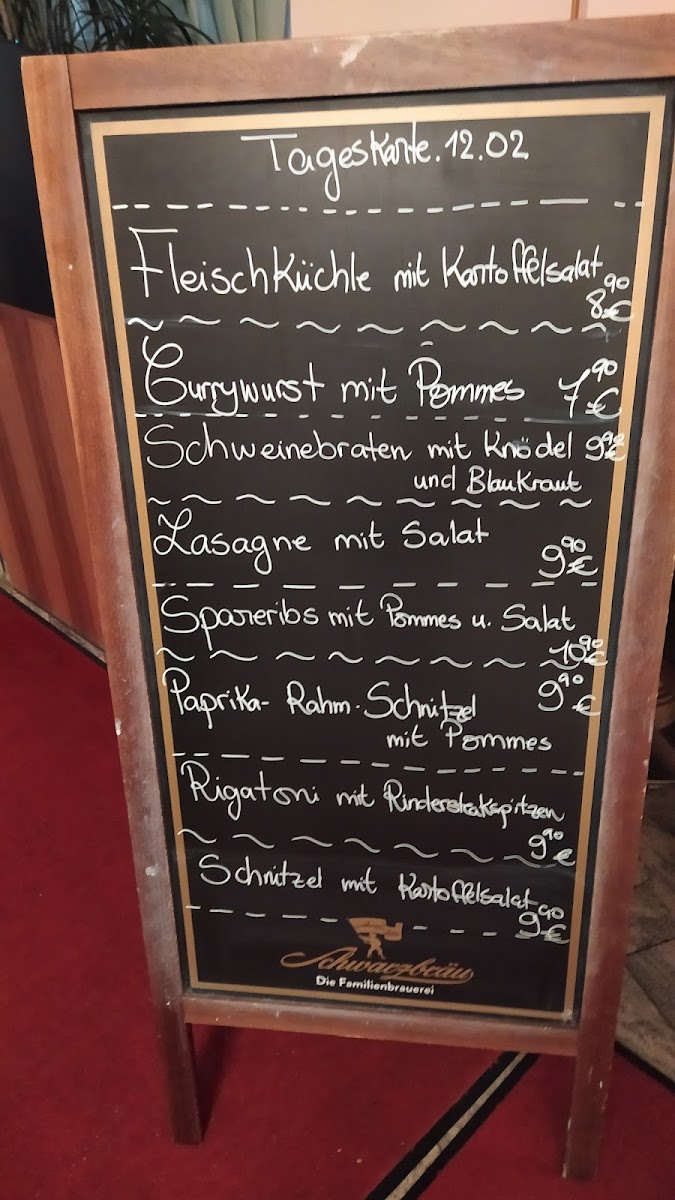 Tageskarte. 12.02
Fleischküchle mit Kartoffelsalat
8,90 €
Currywurst mit Pommes 7,90 €
Schweinebraten mit Knödel 9,90 €
und Blaukraut
Lasagne mit Salat
9,90 €
Spareribs mit Pommes u. Salat
10,90 €
Paprika- Rahm-Schnitzel 9,90 €
mit Pommes
Rigatoni mit Rindersteakspitzen
9,90 €
Schnitzel mit Kartoffelsalat
9,90 €
Schwarzbräu
Die Familienbrauerei